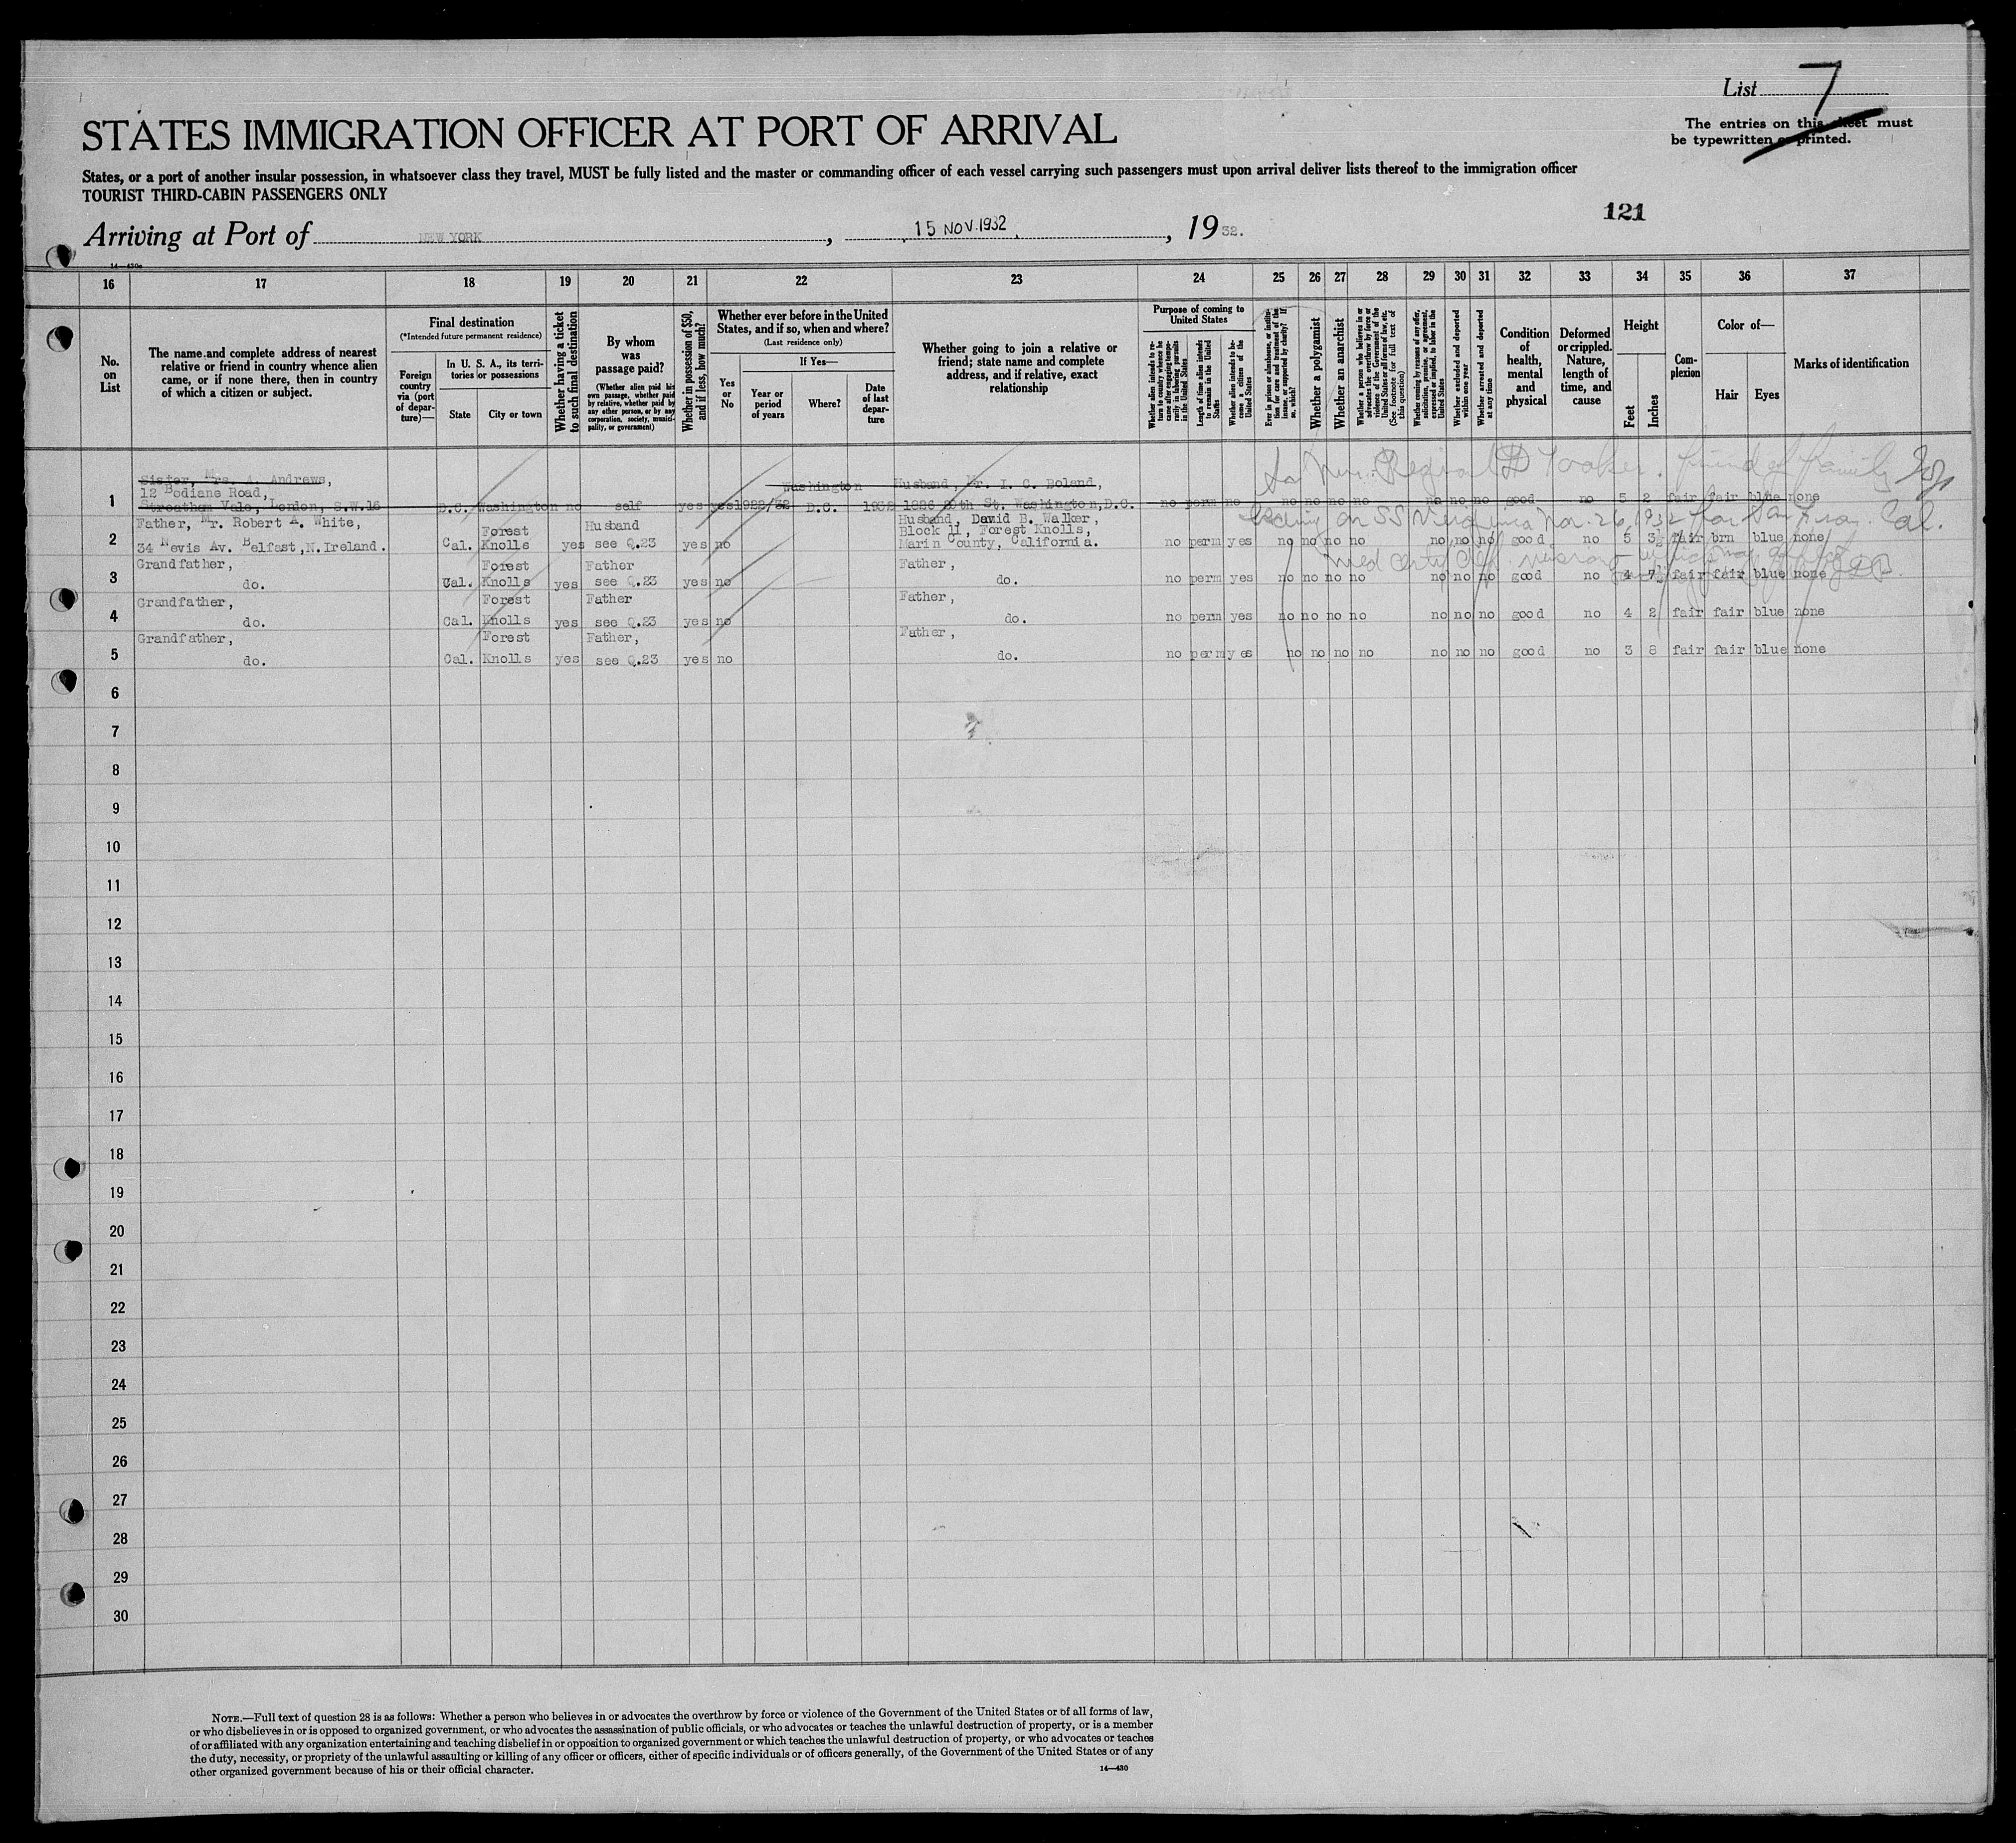 List 7
STATES IMMIGRATION OFFICER AT PORT OF ARRIVAL
The entries on this sheet must
be typewritten or printed.
States, or a port of another insular possession, in whatsoever class they travel, MUST be fully listed and the master or commanding officer of each vessel carrying such passengers must upon arrival deliver lists thereof to the immigration officer
TOURIST THIRD-CABIN PASSENGERS ONLY
121
Arriving at Port of NEW YORK, 15 NOV. 1932, 1932.
14—430a
16 17 18 19 20 21 22 23 24 25 26 27 28 29 30 31 32 33 34 35 36 37
No. on List
The name and complete address of nearest
relative or friend in country whence alien
came, or if none there, then in country
of which a citizen or subject.
Final destination
(*Intended future permanent residence)
Foreign country via (port of departure)—
In U. S. A., its territories or possessions
State
City or town
Whether having a ticket to such final destination
By whom was passage paid?
(Whether alien paid his own passage, whether paid by relative, whether paid by any other person, or by any corporation, society, municipality, or government)
Whether in possession of $50, and if less, how much?
Whether ever before in the United States, and if so, when and where?
(Last residence only)
Yes or No
If Yes—
Year or period of years
Where?
Date of last departure
Whether going to join a relative or
friend; state name and complete
address, and if relative, exact
relationship
Purpose of coming to United States
Whether alien intends to return to country whence he came after engaging temporarily in laboring pursuits in the United States
Length of time alien intends to remain in the United States
Whether alien intends to become a citizen of the United States
Ever in prison or almshouse, or institution for care and treatment of the insane, or supported by charity? If so, which?
Whether a polygamist
Whether an anarchist
Whether a person who believes in or advocates the overthrow by force or violence of the Government of the United States or all forms of law, etc. (See footnote for full text of this question)
Whether coming by reason of any offer, solicitation, promise, or agreement, expressed or implied, to labor in the United States
Whether excluded and deported within one year
Whether arrested and deported at any time
Condition of health, mental and physical
Deformed or crippled. Nature, length of time, and cause
Height
Feet
Inches
Complexion
Color of—
Hair
Eyes
Marks of identification
to Mrs. Friend of family
1 Sister, Mrs. A. Andrews,
12 Bodiane Road,
Streatham Vale, London, S.W.16 D.C. Washington no self yes yes 1922/32 Washington D.C. 1932 Husband, Mr. I. C. Boland,
1826 St. Washington,D.C. no perm no no no no no no no no good no 5 2 fair fair blue none
on SS Nov. 26, 1932 for San Fran. Cal.
2 Father, Mr. Robert A. White,
34 Nevis Av. Belfast,N.Ireland. Cal. Forest Knolls yes Husband see Q.23 yes no Husband, David B. Walker,
Block 11, Forest Knolls,
Marin County, California. no perm yes no no no no no no no good no 5 3½ fair brn blue none
3 Grandfather,
do. Cal. Forest Knolls yes Father see Q.23 yes no Father,
do. no perm yes no no no no no no no good no 4 7½ fair fair blue none
4 Grandfather,
do. Cal. Forest Knolls yes Father see Q.23 yes no Father,
do. no perm yes no no no no no no no good no 4 2 fair fair blue none
5 Grandfather,
do. Cal. Forest Knolls yes Father, see Q.23 yes no Father,
do. no perm yes no no no no no no no good no 3 8 fair fair blue none
6
7
8
9
10
11
12
13
14
15
16
17
18
19
20
21
22
23
24
25
26
27
28
29
30
NOTE.—Full text of question 28 is as follows: Whether a person who believes in or advocates the overthrow by force or violence of the Government of the United States or of all forms of law,
or who disbelieves in or is opposed to organized government, or who advocates the assassination of public officials, or who advocates or teaches the unlawful destruction of property, or is a member
of or affiliated with any organization entertaining and teaching disbelief in or opposition to organized government or which teaches the unlawful destruction of property, or who advocates or teaches
the duty, necessity, or propriety of the unlawful assaulting or killing of any officer or officers, either of specific individuals or of officers generally, of the Government of the United States or of any
other organized government because of his or their official character.
14—430